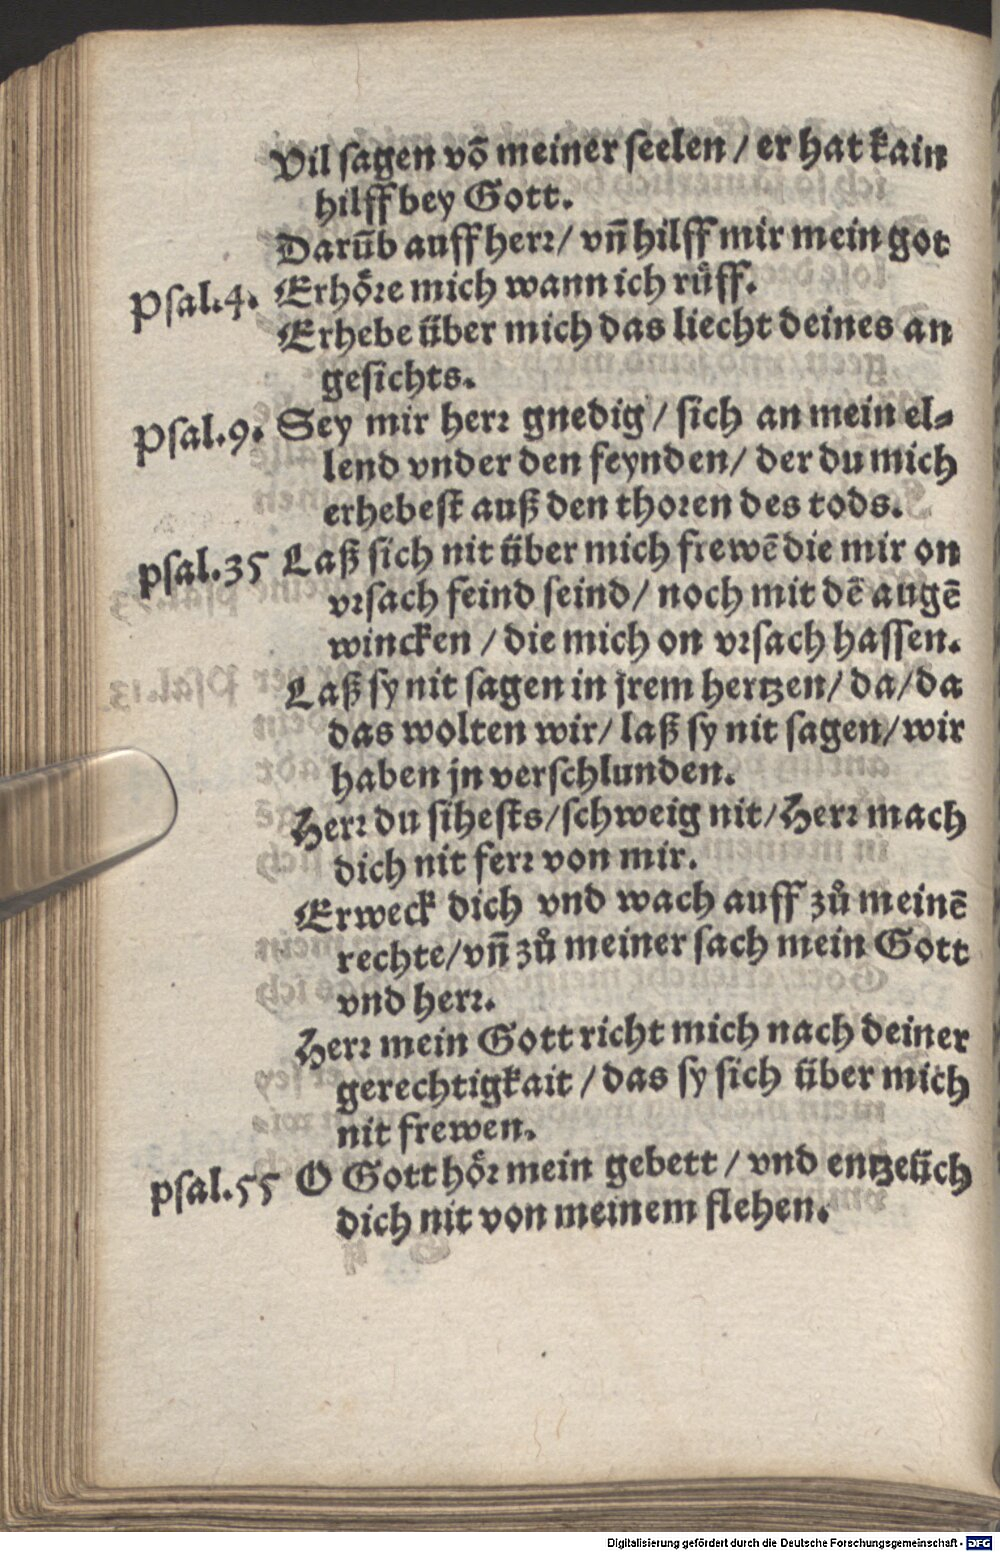 Vil sagen võ meiner seelen / er hat kain
hilff bey Gott.
Darũb auff herr / vñ hilff mir mein got
Psal.4. Erhöre mich wann ich růff.
Erhebe über mich das liecht deines an
gesichts.
Psal.9. Sey mir herr gnedig / sich an mein el⸗
lend vnder den feynden / der du mich
erhebest auß den thoren des tods.
psal.35 Laß sich nit über mich frewẽ die mir on
vrsach feind seind / noch mit dẽ augẽ
wincken / die mich on vrsach hassen.
Laß sy nit sagen in jrem hertzen / da / da
das wolten wir / laß sy nit sagen / wir
haben jn verschlunden.
Herr du sihests / schweig nit / Herr mach
dich nit ferr von mir.
Erweck dich vnd wach auff zů meinẽ
rechte / vñ zů meiner sach mein Gott
vnd herr.
Herr mein Gott richt mich nach deiner
gerechtigkait / das sy sich über mich
nit frewen.
psal.55 O Gott hör mein gebett / vnd entzeüch
dich nit von meinem flehen.
Digitalisierung gefördert durch die Deutsche Forschungsgemeinschaft - DFG